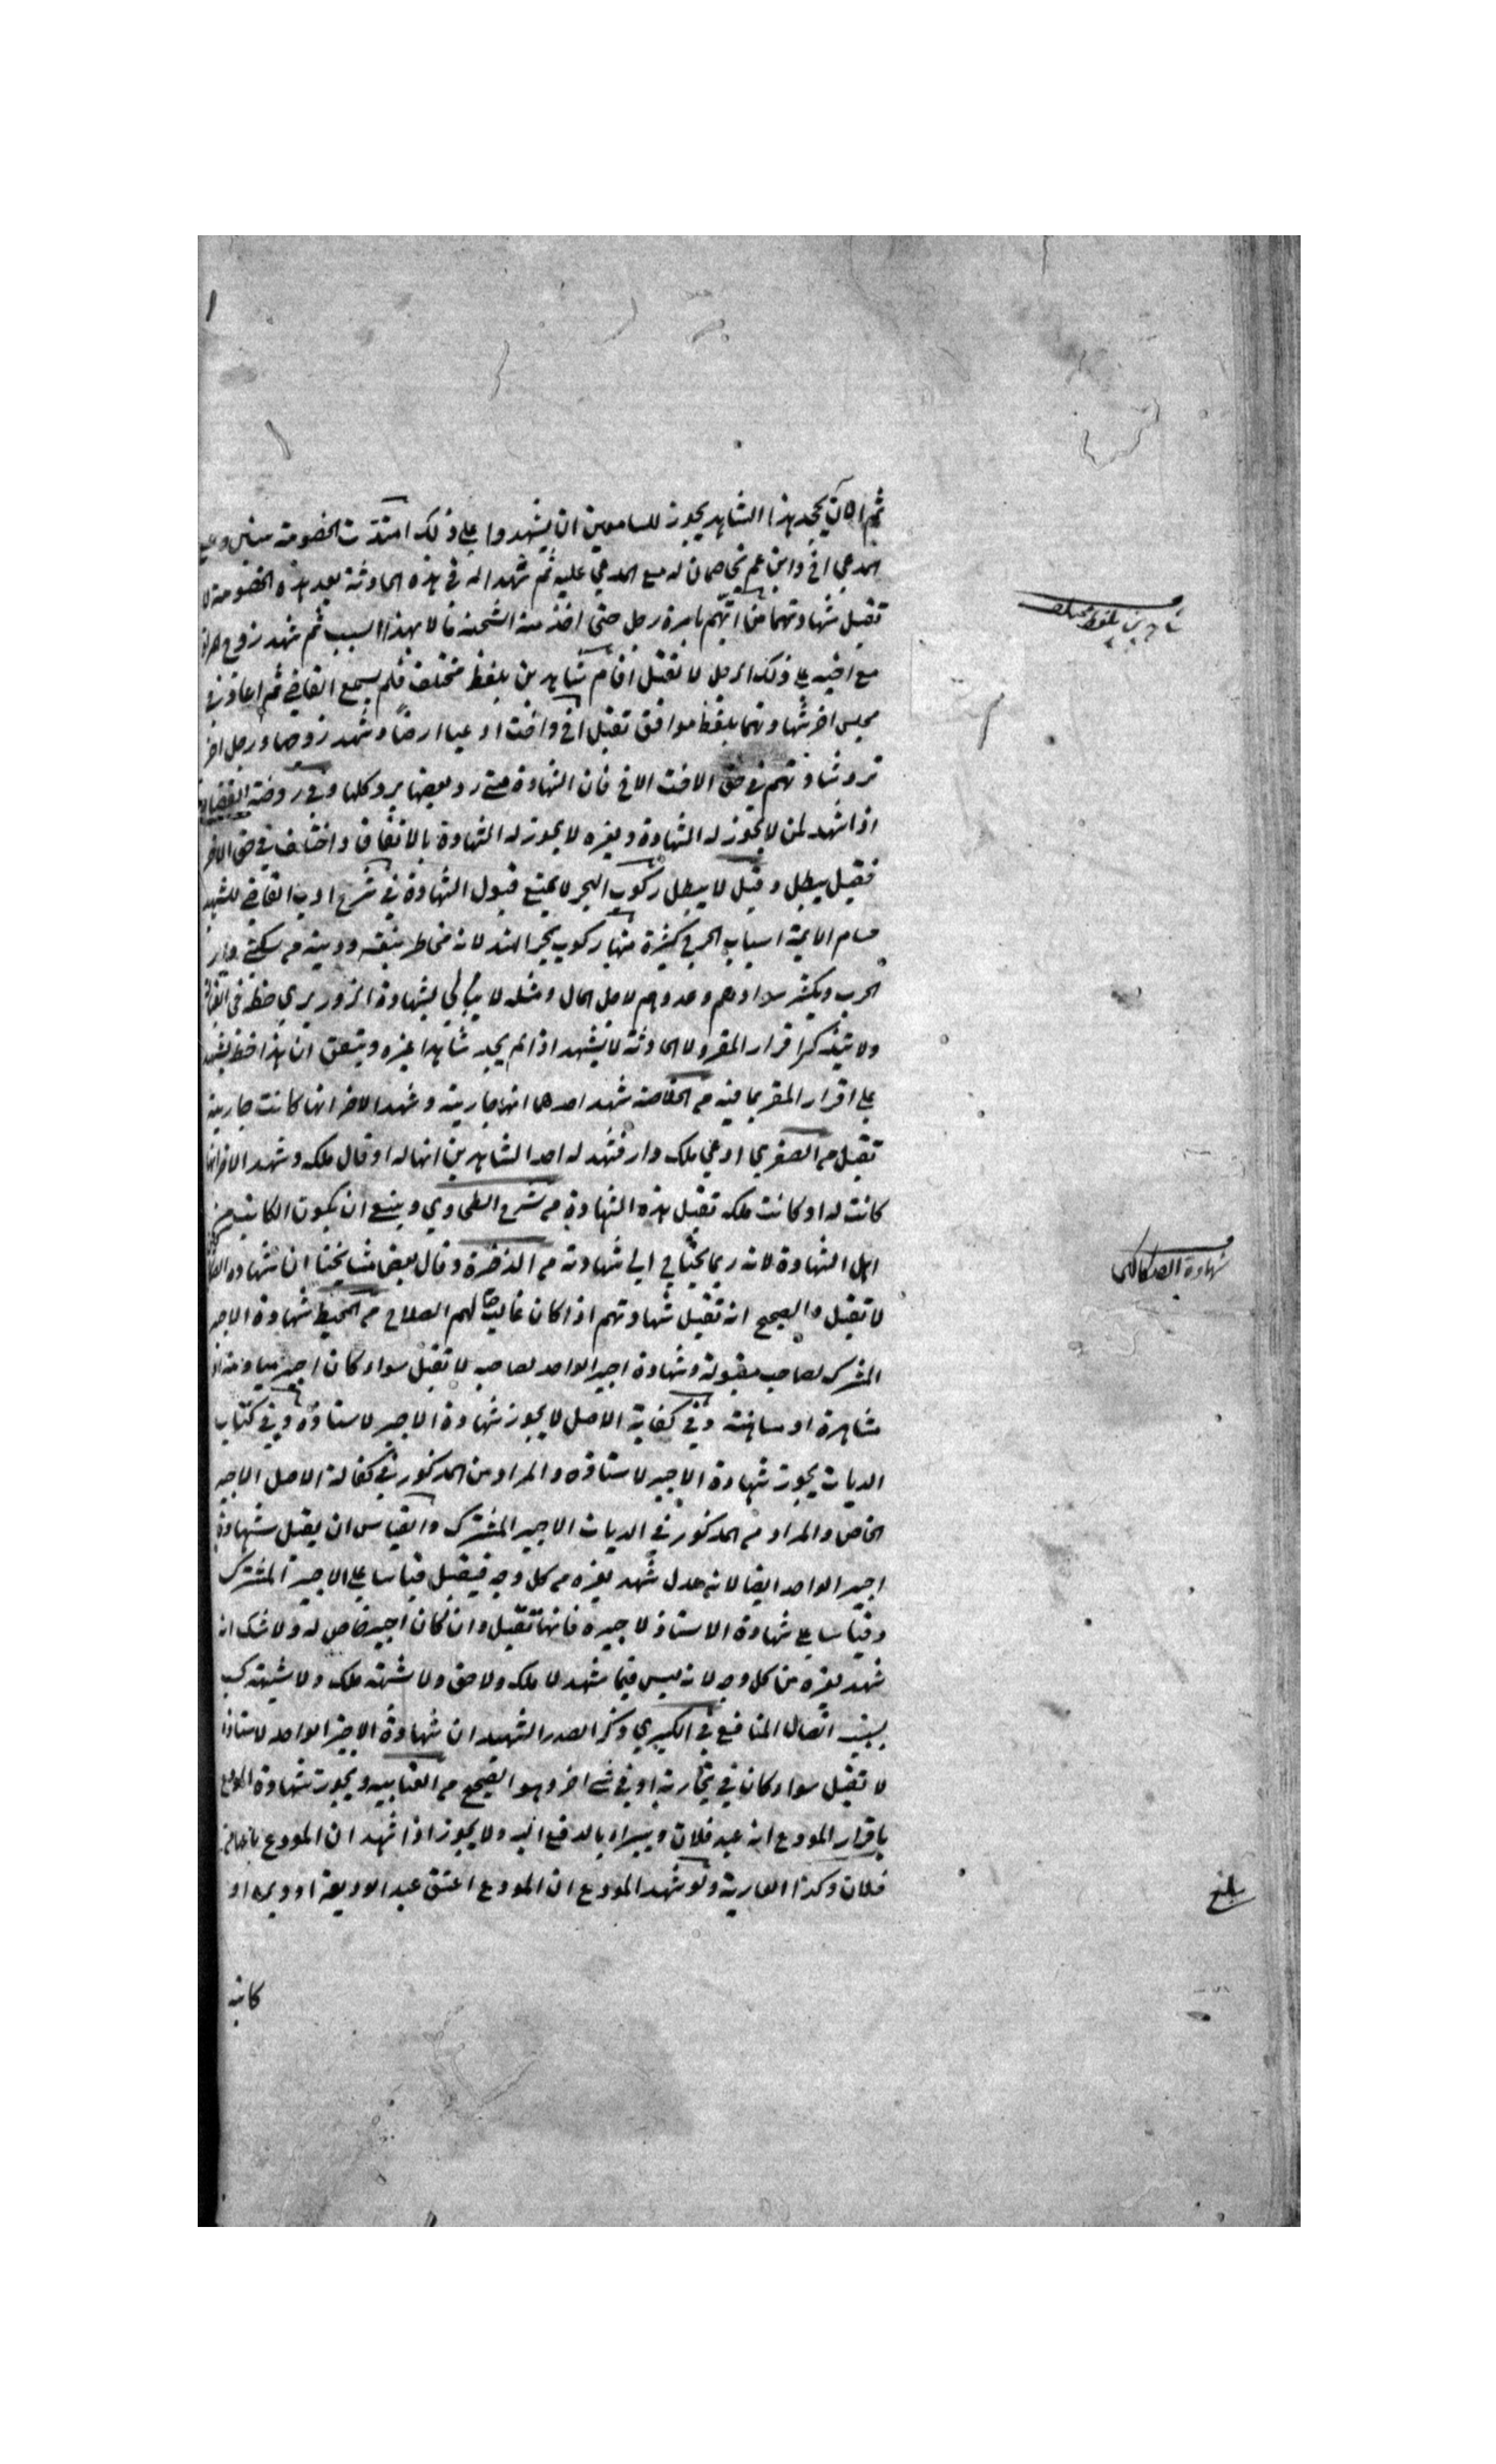 ثم اذا كان يجحد هذا الشاهد يجوز للسامعين ان يشهدوا على ذلك امتدت الخصومة سنين ومع
المدعي اخ وابن عم يخاصمان له مع المدعى عليه ثم شهدا له في هذه الحادثة بعد هذه الخصومة لا
تقبل شهادتهما من اتهم بامرة رجل حتى اخذ منه الشحنة مالا بهذا السبب ثم شهد زوج المراة
مع اخيه على ذلك الرجل لا تقبل اقام شاهدين بلفظ مختلف فلم يسمع القاضي ثم اعاد في
شاهدين بلفظ مختلف
مجلس اخر شهادتهما بلفظ موافق تقبل اخ واخت ادعيا ارضا وشهد زوجها ورجل اخر
ترد شهادتهم في حق الاخت والاخ فان الشهادة متى رد بعضها يرد كلها وفي روضة الفقهاء
اذا شهد لمن لا يجوز له الشهادة وبغيره لا يجوز له الشهادة بالاتفاق واختلف في حق الاخر
فقيل يبطل وقيل لا يبطل ركوب البحر لا يمنع قبول الشهادة في شرح ادب القاضي للشهيد
حسام الايمة اسباب الجرح كثيرة منها ركوب بحر الهند لانه مخاطر بنفسه ودينه من سكنى دار
الحرب وتكثير سوادهم وعددهم لاجل المال ومثله لا يبالي بشهادة الزور يرى خطه في
ولا يتذكر اقرار المقر ولا الحادثة لا يشهد اذا لم يجد شاهدا غيره ويتيقن ان هذا خطه يشهد
على اقرار المقر بما فيه من الخلاصة شهد احدهما انها جاريته وشهد الاخر انها كانت جاريته
تقبل من الصغرى ادعى ملك دار فشهد له احد الشاهدين انها له او قال ملكه وشهد الاخر انها
كانت له او كانت ملكه تقبل هذه الشهادة من شرح الطحاوي وينبغي ان يكون الكاتب من
اهل الشهادة لانه ربما يحتاج الى شهادته من الذخيرة وقال بعض مشايخنا ان شهادة
شهادة الصكاكين
لا تقبل والصحيح انه تقبل شهادتهم اذا كان غالب حالهم الصلاح من المحيط شهادة الاجير
المشترك لصاحبه مقبولة وشهادة اجير الواحد لصاحبه لا تقبل سواء كان اجير مياومة او
مشاهرة او مسانهة وفي كفاية الاصل لا يجوز شهادة الاجير لاستاذه وفي كتاب
الديات يجوز شهادة الاجير لاستاذه والمراد من المذكور في كفالة الاصل الاجير
الخاص والمراد من المذكور في الديات الاجير المشترك والقياس ان يقبل شهادة
اجير الواحد ايضا لانه عدل شهد لغيره من كل وجه فيقبل قياسا على الاجير المشترك
وقياسا على شهادة الاستاذ لاجيره فانها تقبل وان كان اجير خاص له ولا شك انه
شهد لغيره من كل وجه لانه ليس فيما شهد لا ملك ولا حق ولا شبهة ملك ولا شبهة
بسبب اتصال المنافع في الكبرى وذكر الصدر الشهيد ان شهادة الاجير الواحد لاستاذه
لا تقبل سواء كان في تجارته او في شي اخر وهو الصحيح من العتابيه ويجوز شهادة المودع
باقرار المودع انه عبد فلان ويبراء بالدفع اليه ولا يجوز اذا شهد ان المودع باعه من
فلان وكذا العارية ولو شهد المودع ان المودع اعتق عبد الوديعة او دبره او
بلغ
كاتبه